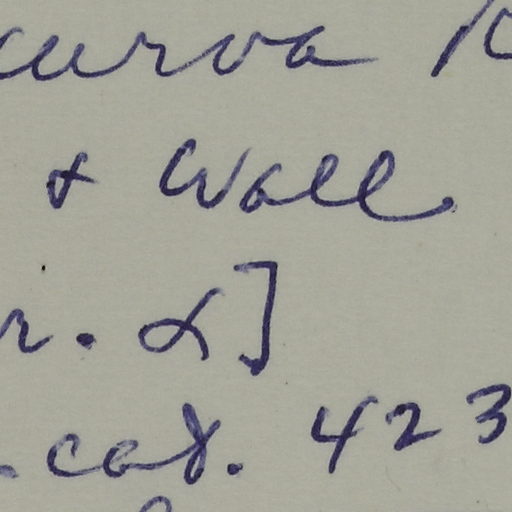 curva R
& Wall.
r. α]
. cat. 423